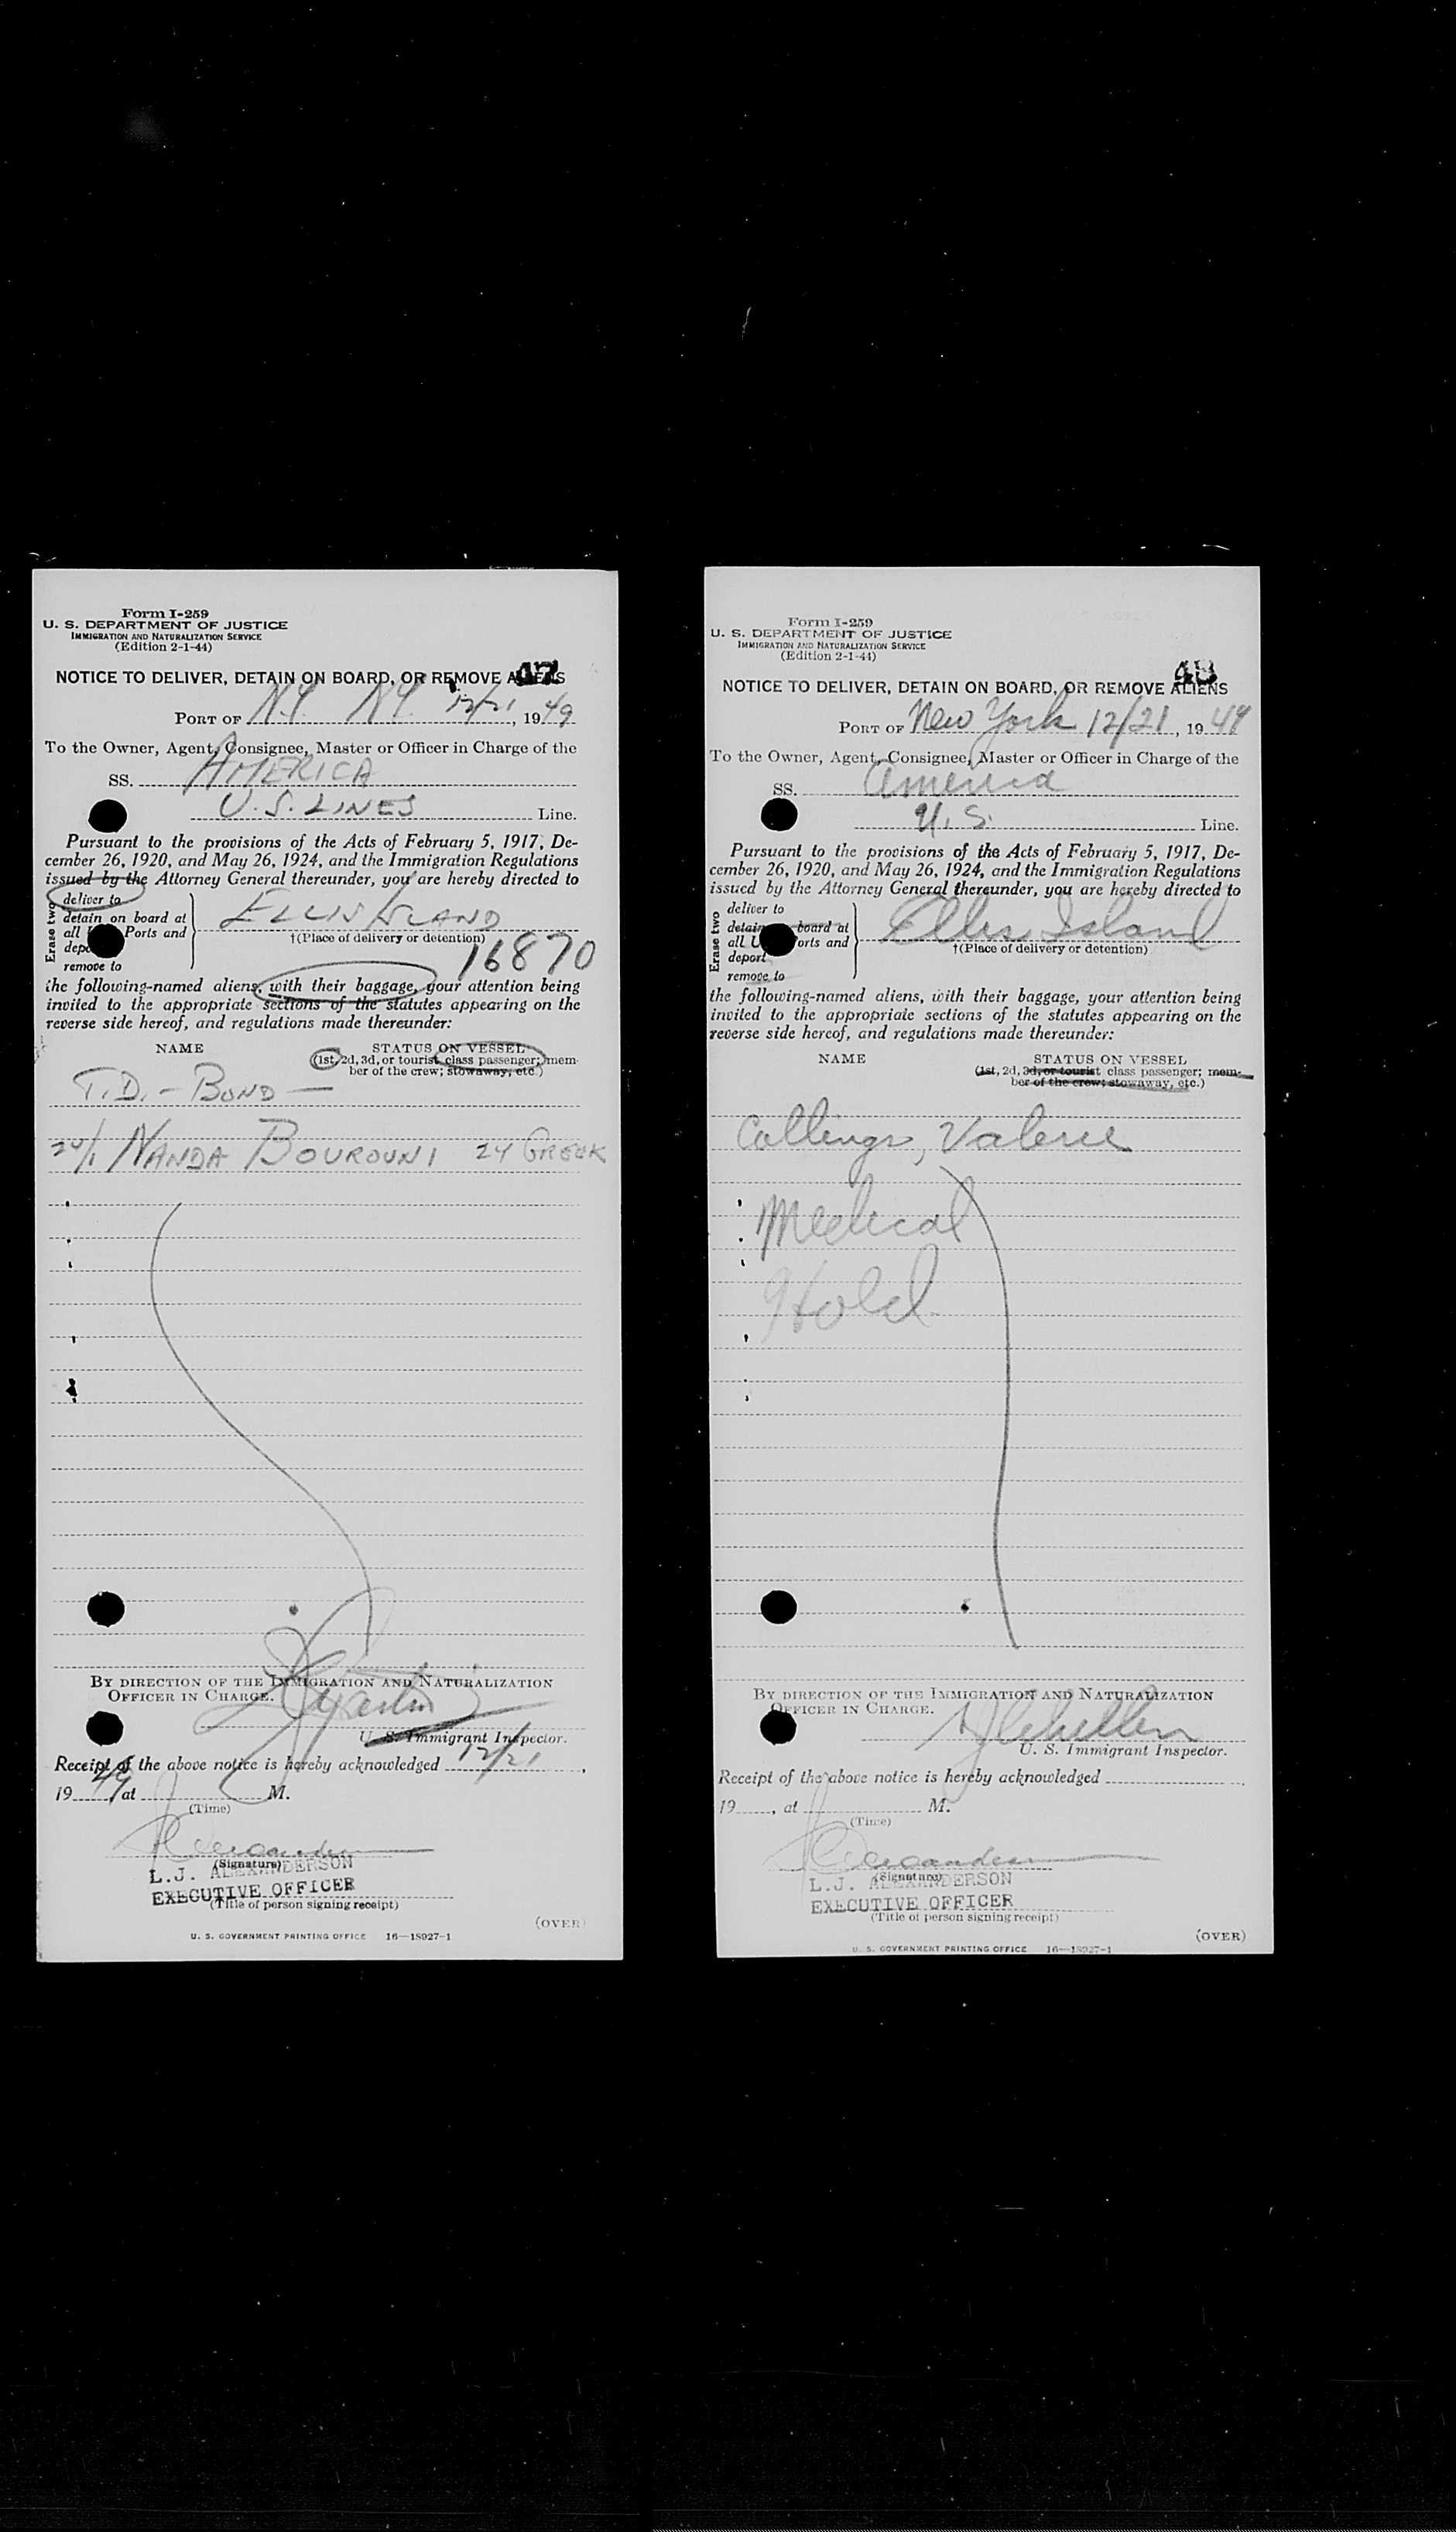 Form I-259
U. S. DEPARTMENT OF JUSTICE
IMMIGRATION AND NATURALIZATION SERVICE
(Edition 2-1-44)
47
NOTICE TO DELIVER, DETAIN ON BOARD, OR REMOVE ALIENS
PORT OF N.Y. N.Y. 12/21, 1949
To the Owner, Agent, Consignee, Master or Officer in Charge of the
SS. AMERICA
U.S. LINES Line.
Pursuant to the provisions of the Acts of February 5, 1917, De-
cember 26, 1920, and May 26, 1924, and the Immigration Regulations
issued by the Attorney General thereunder, you are hereby directed to
Erase two
deliver to
detain on board at
all Ports and
remove to
ELLIS ISLAND
†(Place of delivery or detention)
16870
the following-named aliens, with their baggage, your attention being
invited to the appropriate sections of the statutes appearing on the
reverse side hereof, and regulations made thereunder:
NAME
STATUS ON VESSEL
(1st, 2d, 3d, or tourist class passenger; mem-
ber of the crew; stowaway, etc.)
T.D. - BOND -
24/1 NANDA BOUROUNI 24 GREEK
BY DIRECTION OF THE IMMIGRATION AND NATURALIZATION
OFFICER IN CHARGE.
U. S. Immigrant Inspector.
Receipt of the above notice is hereby acknowledged 12/21,
1949, at M.
(Time)
(Signature)
L.J. ALEXANDERSON
EXECUTIVE OFFICER
(Title of person signing receipt)
(OVER)
U. S. GOVERNMENT PRINTING OFFICE 16—18927-1
Form I-259
U. S. DEPARTMENT OF JUSTICE
IMMIGRATION AND NATURALIZATION SERVICE
(Edition 2-1-44)
48
NOTICE TO DELIVER, DETAIN ON BOARD, OR REMOVE ALIENS
PORT OF New York 12/21, 1949
To the Owner, Agent, Consignee, Master or Officer in Charge of the
SS. America
U. S. Line.
Pursuant to the provisions of the Acts of February 5, 1917, De-
cember 26, 1920, and May 26, 1924, and the Immigration Regulations
issued by the Attorney General thereunder, you are hereby directed to
Erase two
deliver to
detain board at
all U orts and
deport
remove to
Ellis Island
†(Place of delivery or detention)
the following-named aliens, with their baggage, your attention being
invited to the appropriate sections of the statutes appearing on the
reverse side hereof, and regulations made thereunder:
NAME
STATUS ON VESSEL
(1st, 2d, 3d, or tourist class passenger; mem-
ber of the crew; stowaway, etc.)
Collings, Valerie
Medical
Hold
BY DIRECTION OF THE IMMIGRATION AND NATURALIZATION
OFFICER IN CHARGE.
U. S. Immigrant Inspector.
Receipt of the above notice is hereby acknowledged
19 , at M.
(Time)
(Signature)
L.J. ALEXANDERSON
EXECUTIVE OFFICER
(Title of person signing receipt)
(OVER)
U. S. GOVERNMENT PRINTING OFFICE 16—18927-1